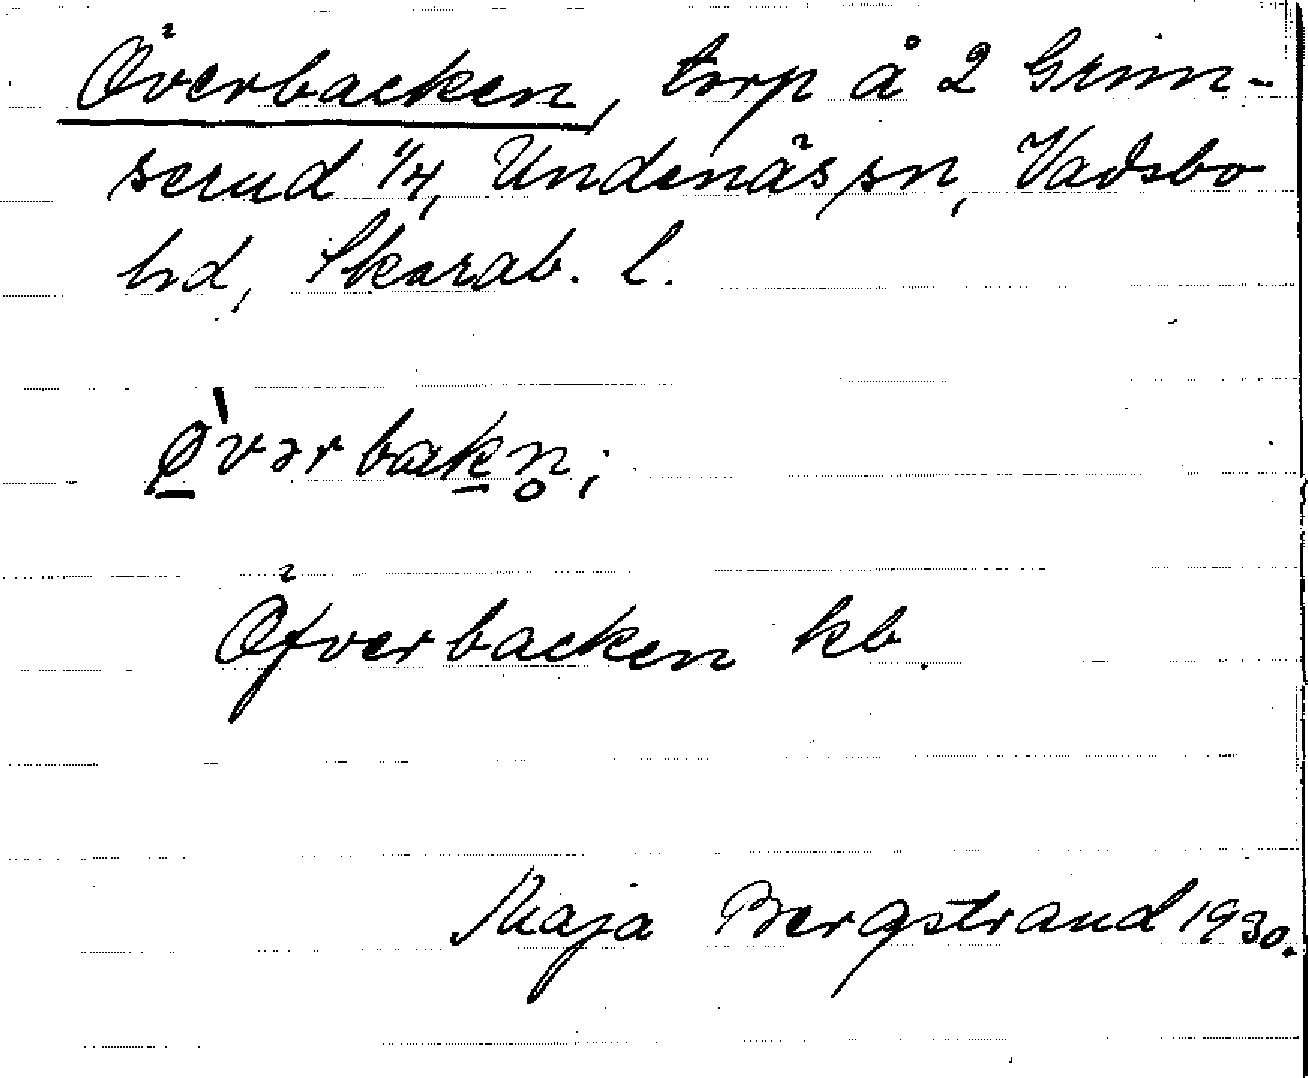 Överbacken, torp å 2 Grim-
serud 1/4, Undenäs sn, Vadsbo
hd, Skarab. l.
ø̱̀vərbaḵn̥;
Öfverbacken kb.
Maja Bergstrand 1930.